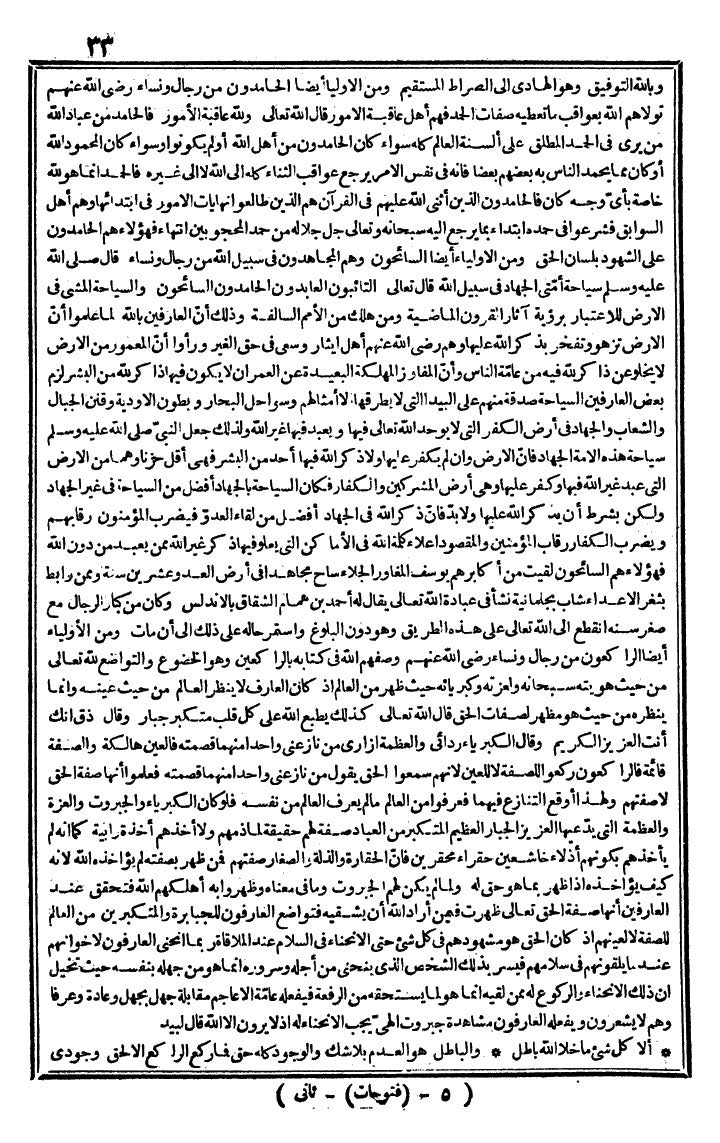 ٣٣
وبالله التوفيق وهو الهادى الى الصراط المستقيم ومن الاولياء أيضا الحامدون من رجال ونساء رضى الله عنهم
تولاهم الله بعواقب ما تعطيه صفات الحمد فهم أهل عاقبة الامور قال الله تعالى ولله عاقبة الأمور فالحامد من عباد الله
من يرى فى الحمد المطلق على ألسنة العالم كله سواء كان الحامدون من أهل الله أو لم يكونوا وسواء كان المحمود الله
أو كان مما يحمد الناس به بعضهم بعضا فانه فى نفس الامر يرجع عواقب الثناء كله الى الله لا الى غيره فالحمد انما هو لله
خاصة بأى وجه كان فالحامدون الذين أثنى الله عليهم فى القرآن هم الذين طالعوا نهايات الامور فى ابتدائها وهم أهل
السوابق فشرعوا فى حمده ابتداء بما يرجع اليه سبحانه وتعالى جل جلاله من حمد المحجوبين انتهاء فهؤلاء هم الحامدون
على الشهود بلسان الحق ومن الاولياء أيضا السائحون وهم المجاهدون فى سبيل الله من رجال ونساء قال صلى الله
عليه وسلم سياحة أمّتى الجهاد فى سبيل الله قال تعالى التائبون العابدون الحامدون السائحون والسياحة المشى فى
الارض للاعتبار برؤية آثار القرون الماضية ومن هلك من الأمم السالفة وذلك أنّ العارفين بالله لما علموا أنّ
الارض تزهو وتفخر بذكر الله عليها وهم رضى الله عنهم أهل ايثار وسعى فى حق الغير ورأوا أنّ المعمور من الارض
لا يخلو عن ذاكر لله فيه من عامّة الناس وأنّ المفاوز المهلكة البعيدة عن العمران لا يكون فيها ذاكر لله من البشر لزم
بعض العارفين السياحة صدقة منهم على البيد التى لا يطرقها الا أمثالهم وسواحل البحار وبطون الاودية وقنن الجبال
والشعاب والجهاد فى أرض الكفر التى لا يوحد الله تعالى فيها ويعبد فيها غير الله ولذلك جعل النبىّ صلى الله عليه وسلم
سياحة هذه الامة الجهاد فانّ الارض وان لم يكفر عليها ولا ذكر الله فيها أحد من البشر فهى أقل حزنا وهما من الارض
التى عبد غير الله فيها وكفر عليها وهى أرض المشركين والكفار فكان السياحة بالجهاد أفضل من السياحة فى غير الجهاد
ولكن بشرط أن يذكر الله عليها ولا بدّ فانّ ذكر الله فى الجهاد أفضل من لقاء العدوّ فيضرب المؤمنون رقابهم
ويضرب الكفار رقاب المؤمنين والمقصود اعلاء كلمة الله فى الأماكن التى يعلو فيها ذكر غير الله ممن يعبد من دون الله
فهؤلاء هم السائحون لقيت من أكابرهم يوسف المغاور الجلاء ساح مجاهدا فى أرض العدو عشرين سنة وممن رابط
بثغر الاعداء شاب بجلمانية نشأ فى عبادة الله تعالى يقال له أحمد بن همام الشقاق بالاندلس وكان من كبار الرجال مع
صغر سنه انقطع الى الله تعالى على هذه الطريق وهو دون البلوغ واستمر حاله على ذلك الى أن مات ومن الأولياء
أيضا الراكعون من رجال ونساء رضى الله عنهم وصفهم الله فى كتابه بالراكعين وهو الخضوع والتواضع لله تعالى
من حيث هويته سبحانه ولعزته وكبريائه حيث ظهر من العالم اذ كان العارف لا ينظر العالم من حيث عينه وانما
ينظره من حيث هو مظهر لصفات الحق قال الله تعالى كذلك يطبع الله على كل قلب متكبر جبار وقال ذق انك
أنت العزيز الكريم وقال الكبرياء ردائى والعظمة ازارى من نازعنى واحدا منهما قصمته فالعين هالكة والصفة
قائمة فالراكعون ركعوا للصفة لا للعين لانهم سمعوا الحق يقول من نازعنى واحدا منهما قصمته فعلموا أنها صفة الحق
لا صفتهم ولهذا أوقع التنازع فيهما فعرفوا من العالم ما لم يعرف العالم من نفسه فلو كان الكبرياء والجبروت والعزة
والعظمة التى يدّعيها العزيز الجبار العظيم المتكبر من العباد صفة لهم حقيقة لما ذمهم ولا أخذهم أخذة رابية كما انه لم
يأخذهم بكونهم أذلاء خاشعين حقراء محقرين فانّ الحقارة والذلة والصغار صفتهم فمن ظهر بصفته لم يؤاخذه الله لانه
كيف يؤاخذه اذا ظهر بما هو حق له ولما لم يكن لهم الجبروت وما فى معناه وظهروا به أهلكهم الله فتحقق عند
العارفين أنها صفة الحق تعالى ظهرت فيمن أراد الله أن يشقيه فتواضع العارفون للجبابرة والمتكبرين من العالم
للصفة لا لعينهم اذ كان الحق هو مشهودهم فى كل شئ حتى الانحناء فى السلام عند الملاقاة ربما انحنى العارفون لاخوانهم
عند ما يلقونهم فى سلامهم فيسر بذلك الشخص الذى ينحنى من أجله وسروره انما هو من جهله بنفسه حيث تخيل
ان ذلك الانحناء والركوع له ممن لقيه انما هو لما يستحقه من الرفعة فيفعله عامّة الاعاجم مقابلة جهل بجهل وعادة وعرفا
وهم لا يشعرون ويفعله العارفون مشاهدة جبروت الهىّ يجب الانحناء له اذ لا يرون الا الله قال لبيد
* ألا كل شئ ما خلا الله باطل * والباطل هو العدم بلا شك والوجود كله حق فما ركع الراكع الا لحق وجودى
( ٥ - (فتوحات) - ثانى )